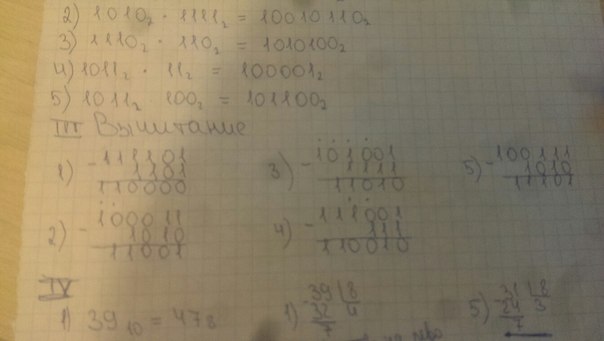 2) 1010₂ · 1111₂ = 10010110₂
3) 1110₂ · 110₂ = 1010100₂
4) 1011₂ · 11₂ = 100001₂
5) 1011₂ 100₂ = 101100₂
III Вычитание
1) - 111101
1101
110000
3) - 101001
1111
11010
5) - 100111
1010
11101
2) - 100011
1010
11001
4) - 111001
111
110010
IV
1) 39₁₀ = 47₈
1) - 39 | 8
32 4
7
5) - 31 | 8
24 3
7